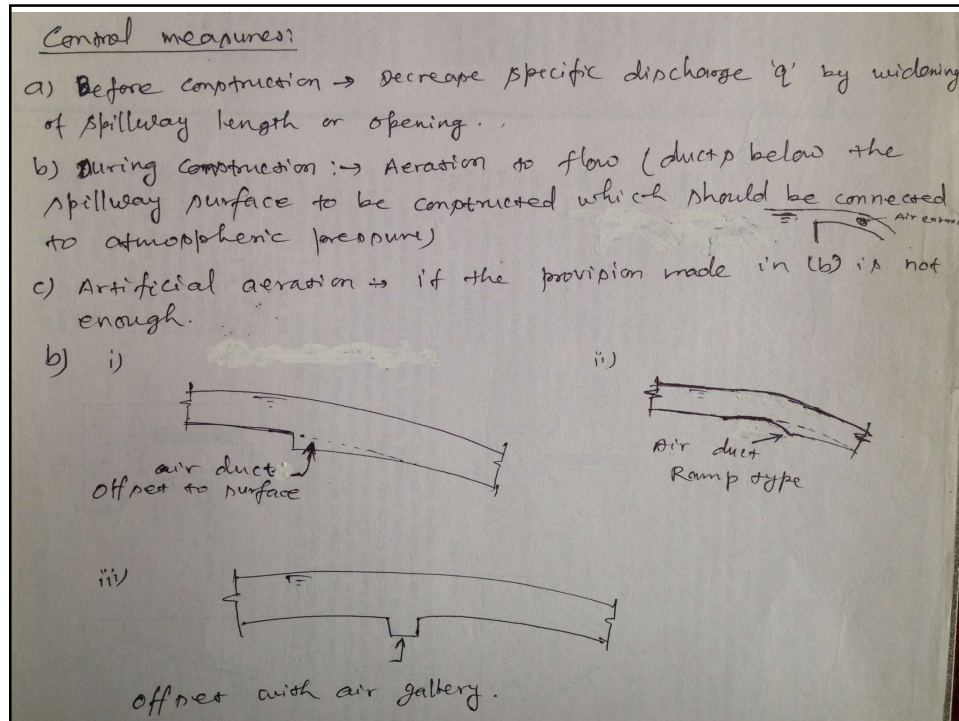 Control measures:
a) Before construction → Decrease specific discharge 'q' by widening
of spillway length or opening.
b) During Construction :→ Aeration to flow (ducts below the
spillway surface to be constructed which should be connected
to atmospheric pressure)
Air
c) Artificial aeration → if the provision made in (b) is not
enough.
b) i)
ii)
air duct
Offset to surface
Air duct
Ramp type
iii)
Offset with air gallery.